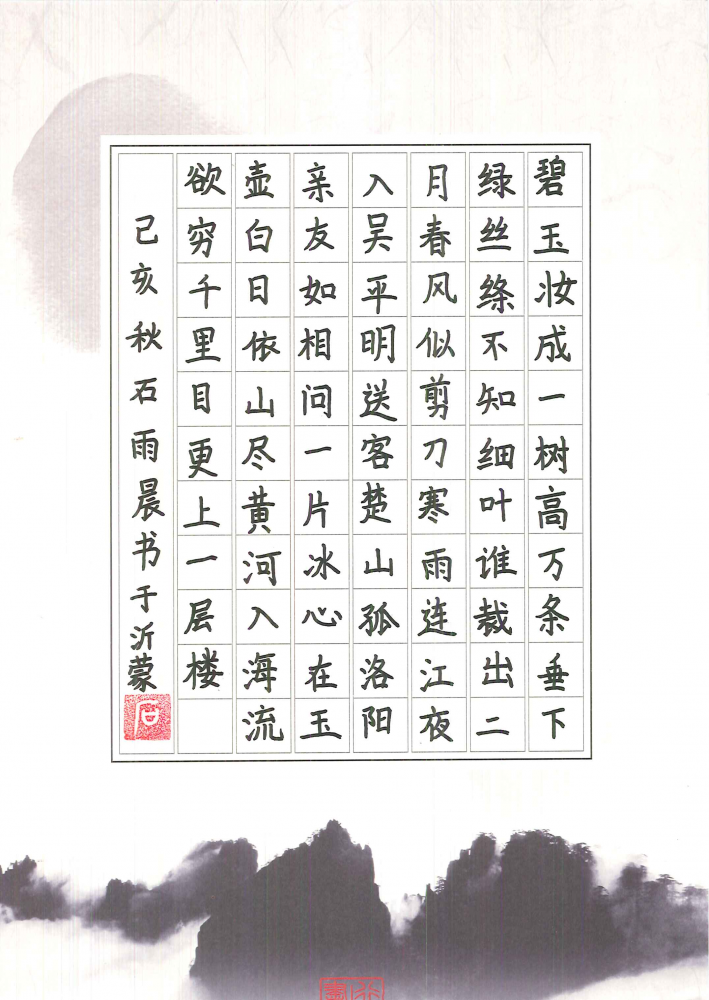 碧玉妆成一树高万条垂下
绿丝绦不知细叶谁裁出二
月春风似剪刀寒雨连江夜
入吴平明送客楚山孤洛阳
亲友如相问一片冰心在玉
壶白日依山尽黄河入海流
欲穷千里目更上一层楼
己亥秋石雨晨书于沂蒙
石